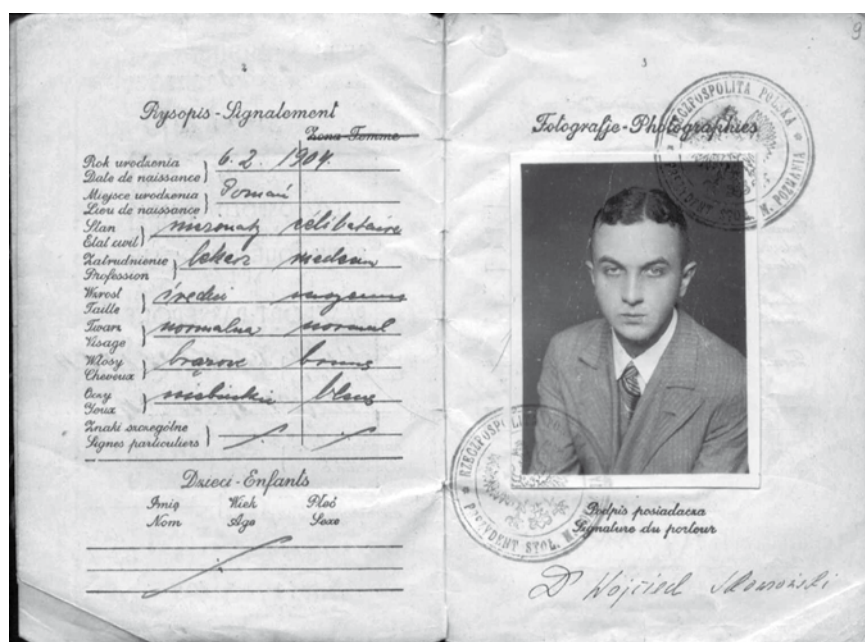 9
Rysopis - Signalement
Żona-Femme
Rok urodzenia
Date de naissance
6. 2. 1904.
Miejsce urodzenia
Lieu de naissance
Poznań
Stan
Etat civil
nieżonaty célibataire
Zatrudnienie
Profession
lekarz médecin
Wzrost
Taille
średni moyenne
Twarz
Visage
normalna normal
Włosy
Cheveux
brązowe bruns
Oczy
Yeux
niebieskie bleus
Znaki szczególne
Signes particuliers
Dzieci - Enfants
Imię Wiek Płeć
Nom Age Sexe
Fotografje - Photographies
RZECZPOSPOLITA POLSKA
PREZYDENT STOŁ. M. POZNANIA
RZECZPOSPOLITA
PREZYDENT STOŁ. M.
Podpis posiadacza
Signature du porteur
Dr Wojciech